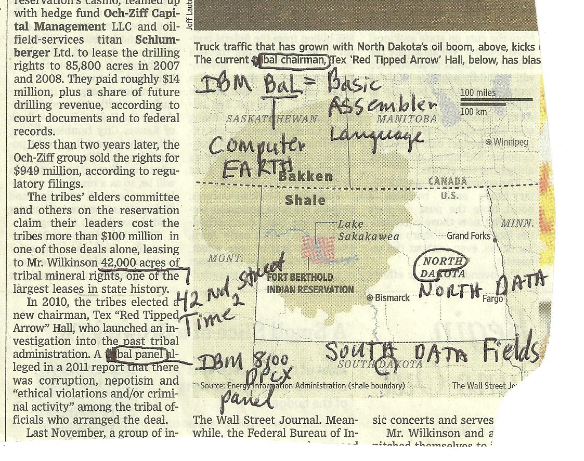 reservation's casino, teamed up
with hedge fund Och-Ziff Capi-
tal Management LLC and oil-
field-services titan Schlum-
berger Ltd. to lease the drilling
rights to 85,800 acres in 2007
and 2008. They paid roughly $14
million, plus a share of future
drilling revenue, according to
court documents and to federal
records.
Less than two years later, the
Och-Ziff group sold the rights for
$949 million, according to regu-
latory filings.
The tribes' elders committee
and others on the reservation
claim their leaders cost the
tribes more than $100 million in
one of those deals alone, leasing
to Mr. Wilkinson 42,000 acres of
tribal mineral rights, one of the
largest leases in state history.
In 2010, the tribes elected
new chairman, Tex "Red Tipped
Arrow" Hall, who launched an in-
vestigation into the past tribal
administration. A bal panel al-
leged in a 2011 report that there
was corruption, nepotism and
"ethical violations and/or crimi-
nal activity" among the tribal of-
ficials who arranged the deal.
Last November, a group of in-
Truck traffic that has grown with North Dakota's oil boom, above, kicks
The current bal chairman, Tex 'Red Tipped Arrow' Hall, below, has blas
IBM BaL = Basic
Assembler
Language
Computer
EARTH
100 miles
100 km
SASKATCHEWAN
MANITOBA
Winnipeg
Bakken
Shale
CANADA
U.S.
MONT.
MINN.
Lake
Sakakawea
Grand Forks
NORTH
DAKOTA
NORTH DATA
FORT BERTHOLD
INDIAN RESERVATION
Bismarck
Fargo
42nd Street
Time
SOUTH DATA Fields
SOUTH DAKOTA
IBM 8100
DPCX
panel
Source: Energy Information Administration (shale boundary)
The Wall Street Jo
The Wall Street Journal. Mean-
while, the Federal Bureau of In-
sic concerts and serves
Mr. Wilkinson and a
pitched themselves to i